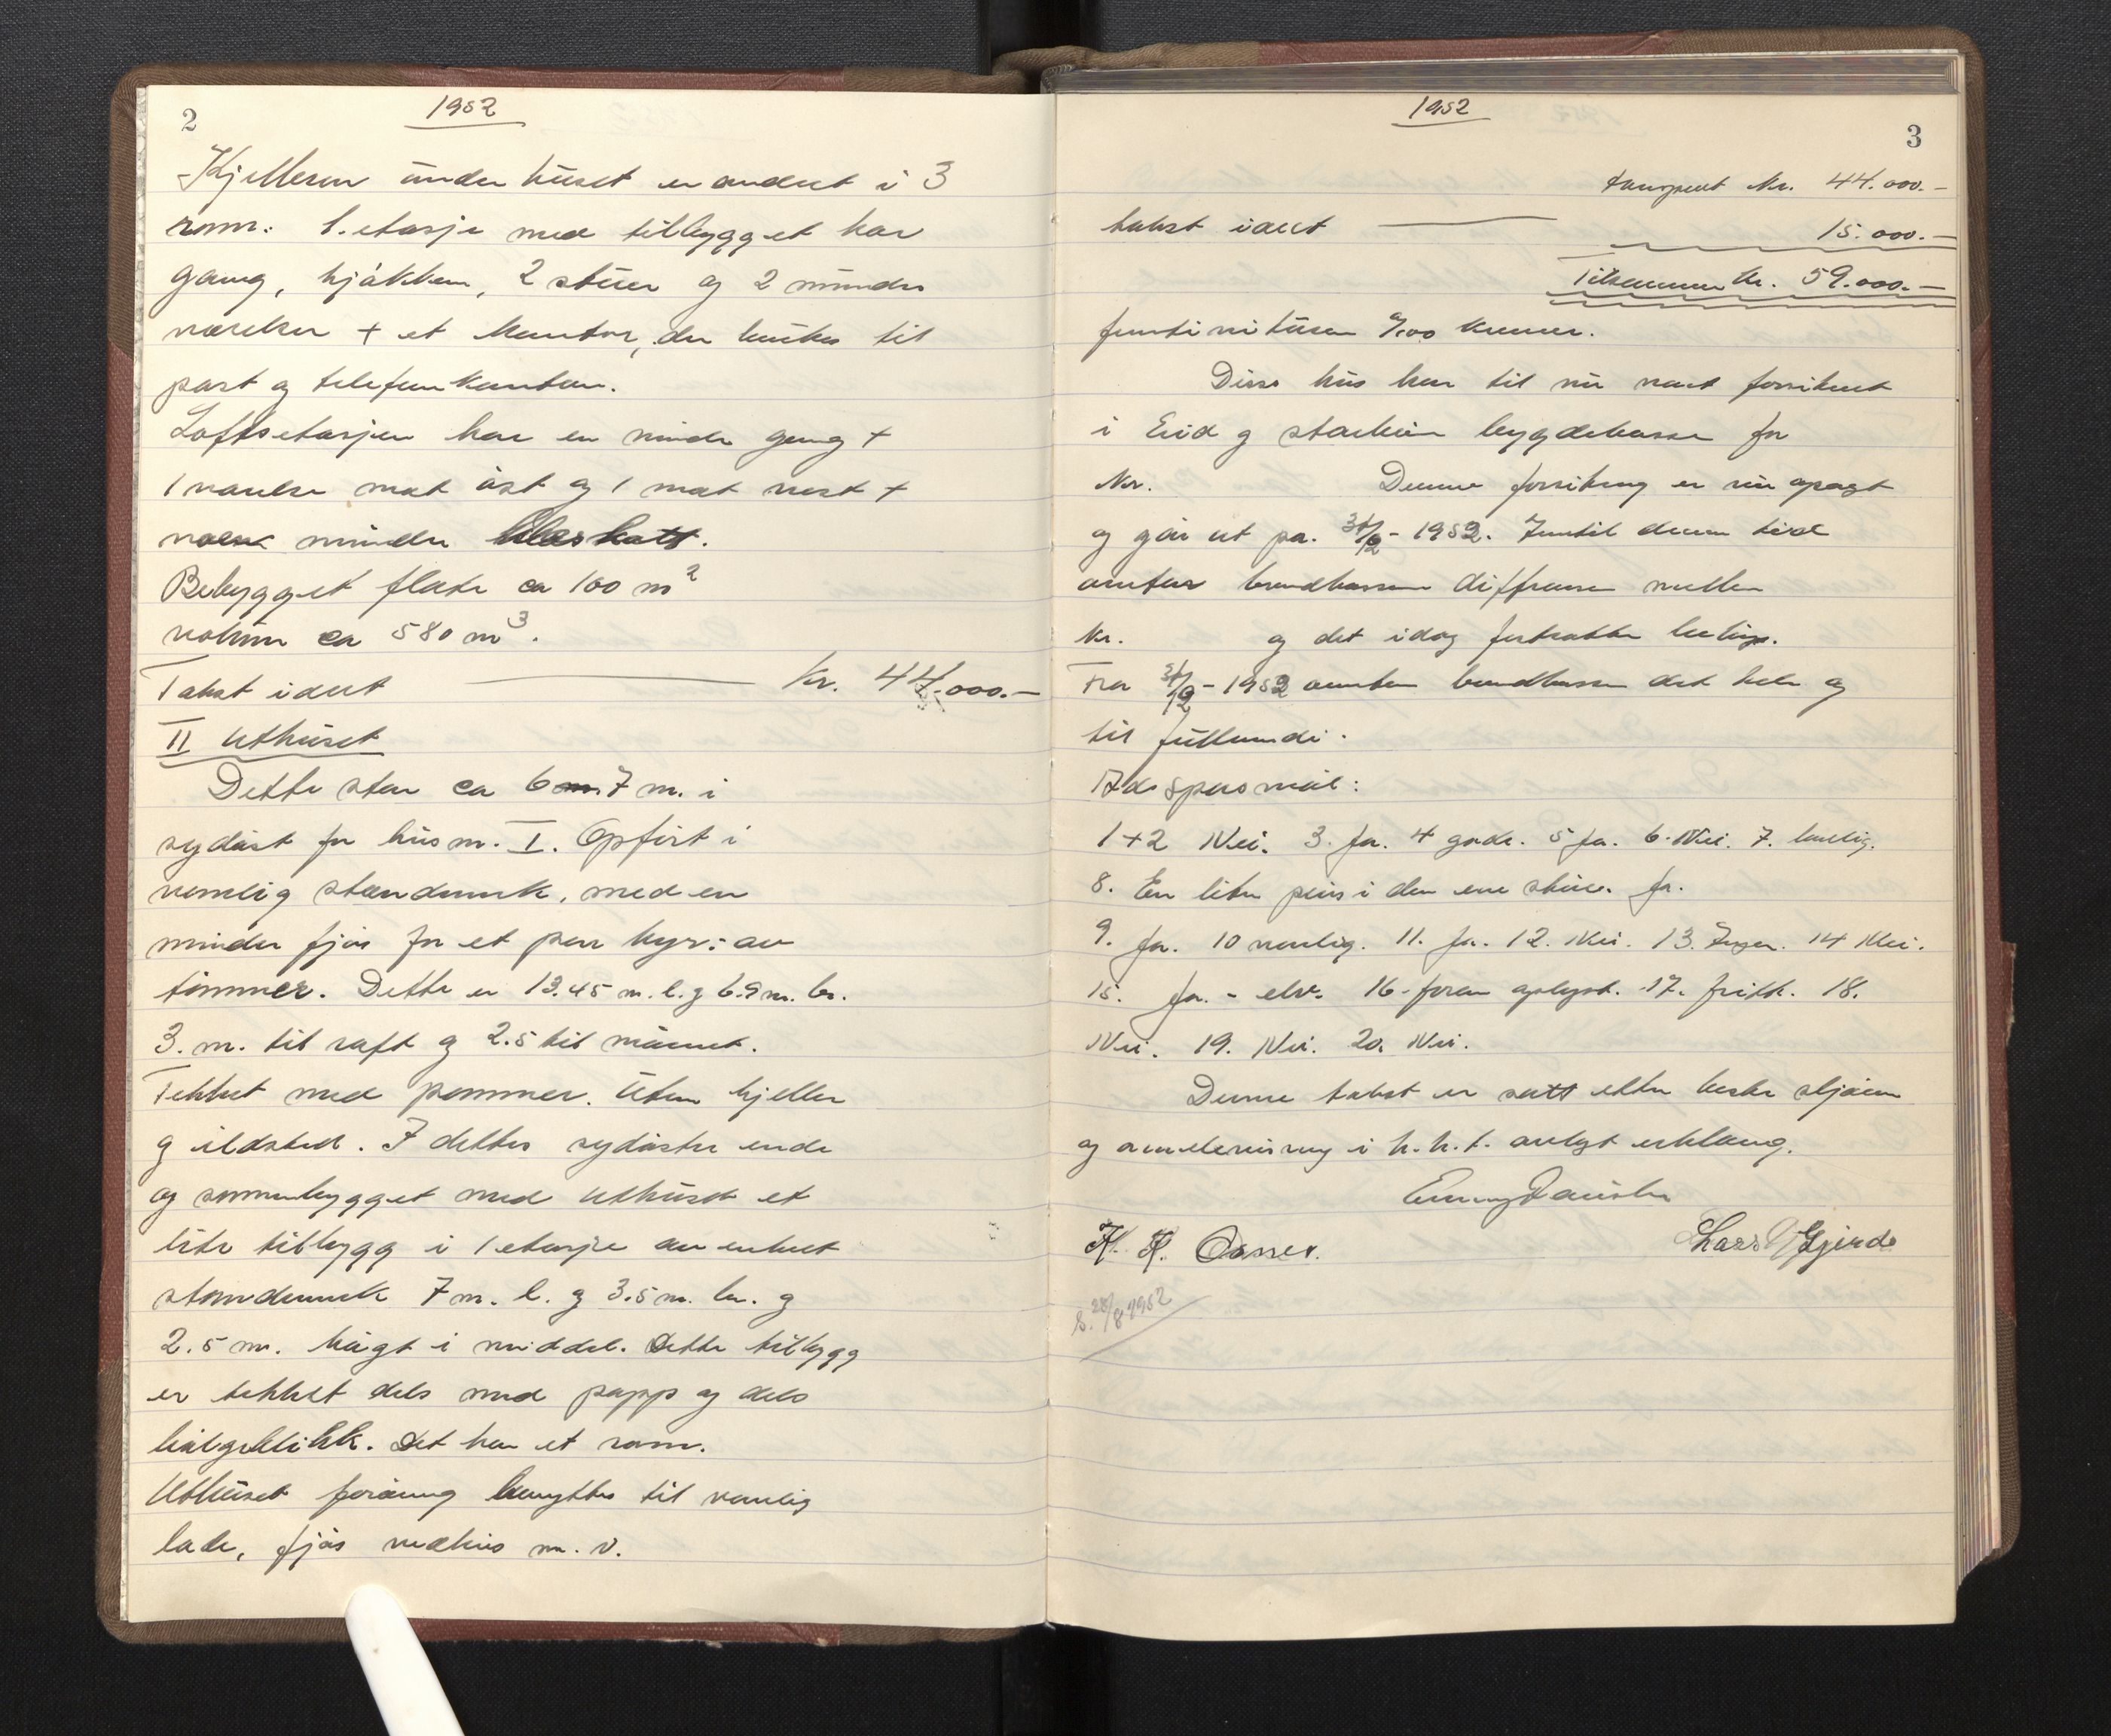 2
1952
Kjelleren under huset er avdelt i 3
rom. 1. etasje med tilbygget har
gang, kjøkken, 2 stuer og 2 mindre
værelser + et kontor, der brukes til
post og telefonkontor.
Loftsetasjen har en mindre gang +
1 værelse mot øst og 1 mot vest +
noen mindre
Bebygget flate ca 100 m²
volum ca 580 m³.
Takst idelt Kr. 44.000.-
II Uthuset
Dette star ca 6 a 7 m. i
sydøst for hus m. I. Opført i
vanlig standverk, med en
mindre fjøs for et par kyr: av
tømmer. Dette er 13.45 m. l. og 6.9 m. br.
3. m. til raft og 2.5 til mønet.
Tekket med panner. Uten kjeller
og ildsted. I dettes sydøstre ende
og sammenbygget med uthuset et
lite tilbygg i 1 etasje av enkelt
standverk 7 m. l. og 3.5 m. br. og
2.5 m. høgt i middel. Dette tilbygg
er tekket dels med papp og dels
bølgeblikk. Det har et rom.
Uthuset forøvrig benyttes til vanlig
lade, fjøs vedhus m. v.
1952
3
transport Kr. 44.000.-
takst idelt 15.000.-
Tilsammen Kr. 59.000.-
femtinitusen 0/100 kroner.
Disse hus har til nu vært forsikret
i Eid og Starheim bygdekasse for
Kr. Denne forsikring er nu opsagt
og går ut pa. 31/12-1952. Inntil denne tid
overtar brandkassen differansen mellem
Kr. og det idag fastsatte beløp.
Fra 31/12-1952 overtar brandkassen det hele og
til fullverdi.
Ad spørsmål:
1+2 Nei. 3. Ja. 4 gode. 5 Ja. 6. Nei. 7. vanlig.
8. En liten peis i den ene stue. Ja.
9. Ja. 10 vanlig. 11. Ja. 12. Nei. 13. Ingen. 14 Nei.
15. Ja. - elv. 16. foran oplyst. 17. fritt. 18.
Nei. 19. Nei. 20. Nei.
Denne takst er satt etter beste skjønn
og overbevisning i h. h. t. avlagt erklæring.
K. K. Osnes. Lars Gjerde
S. 28/8 1952